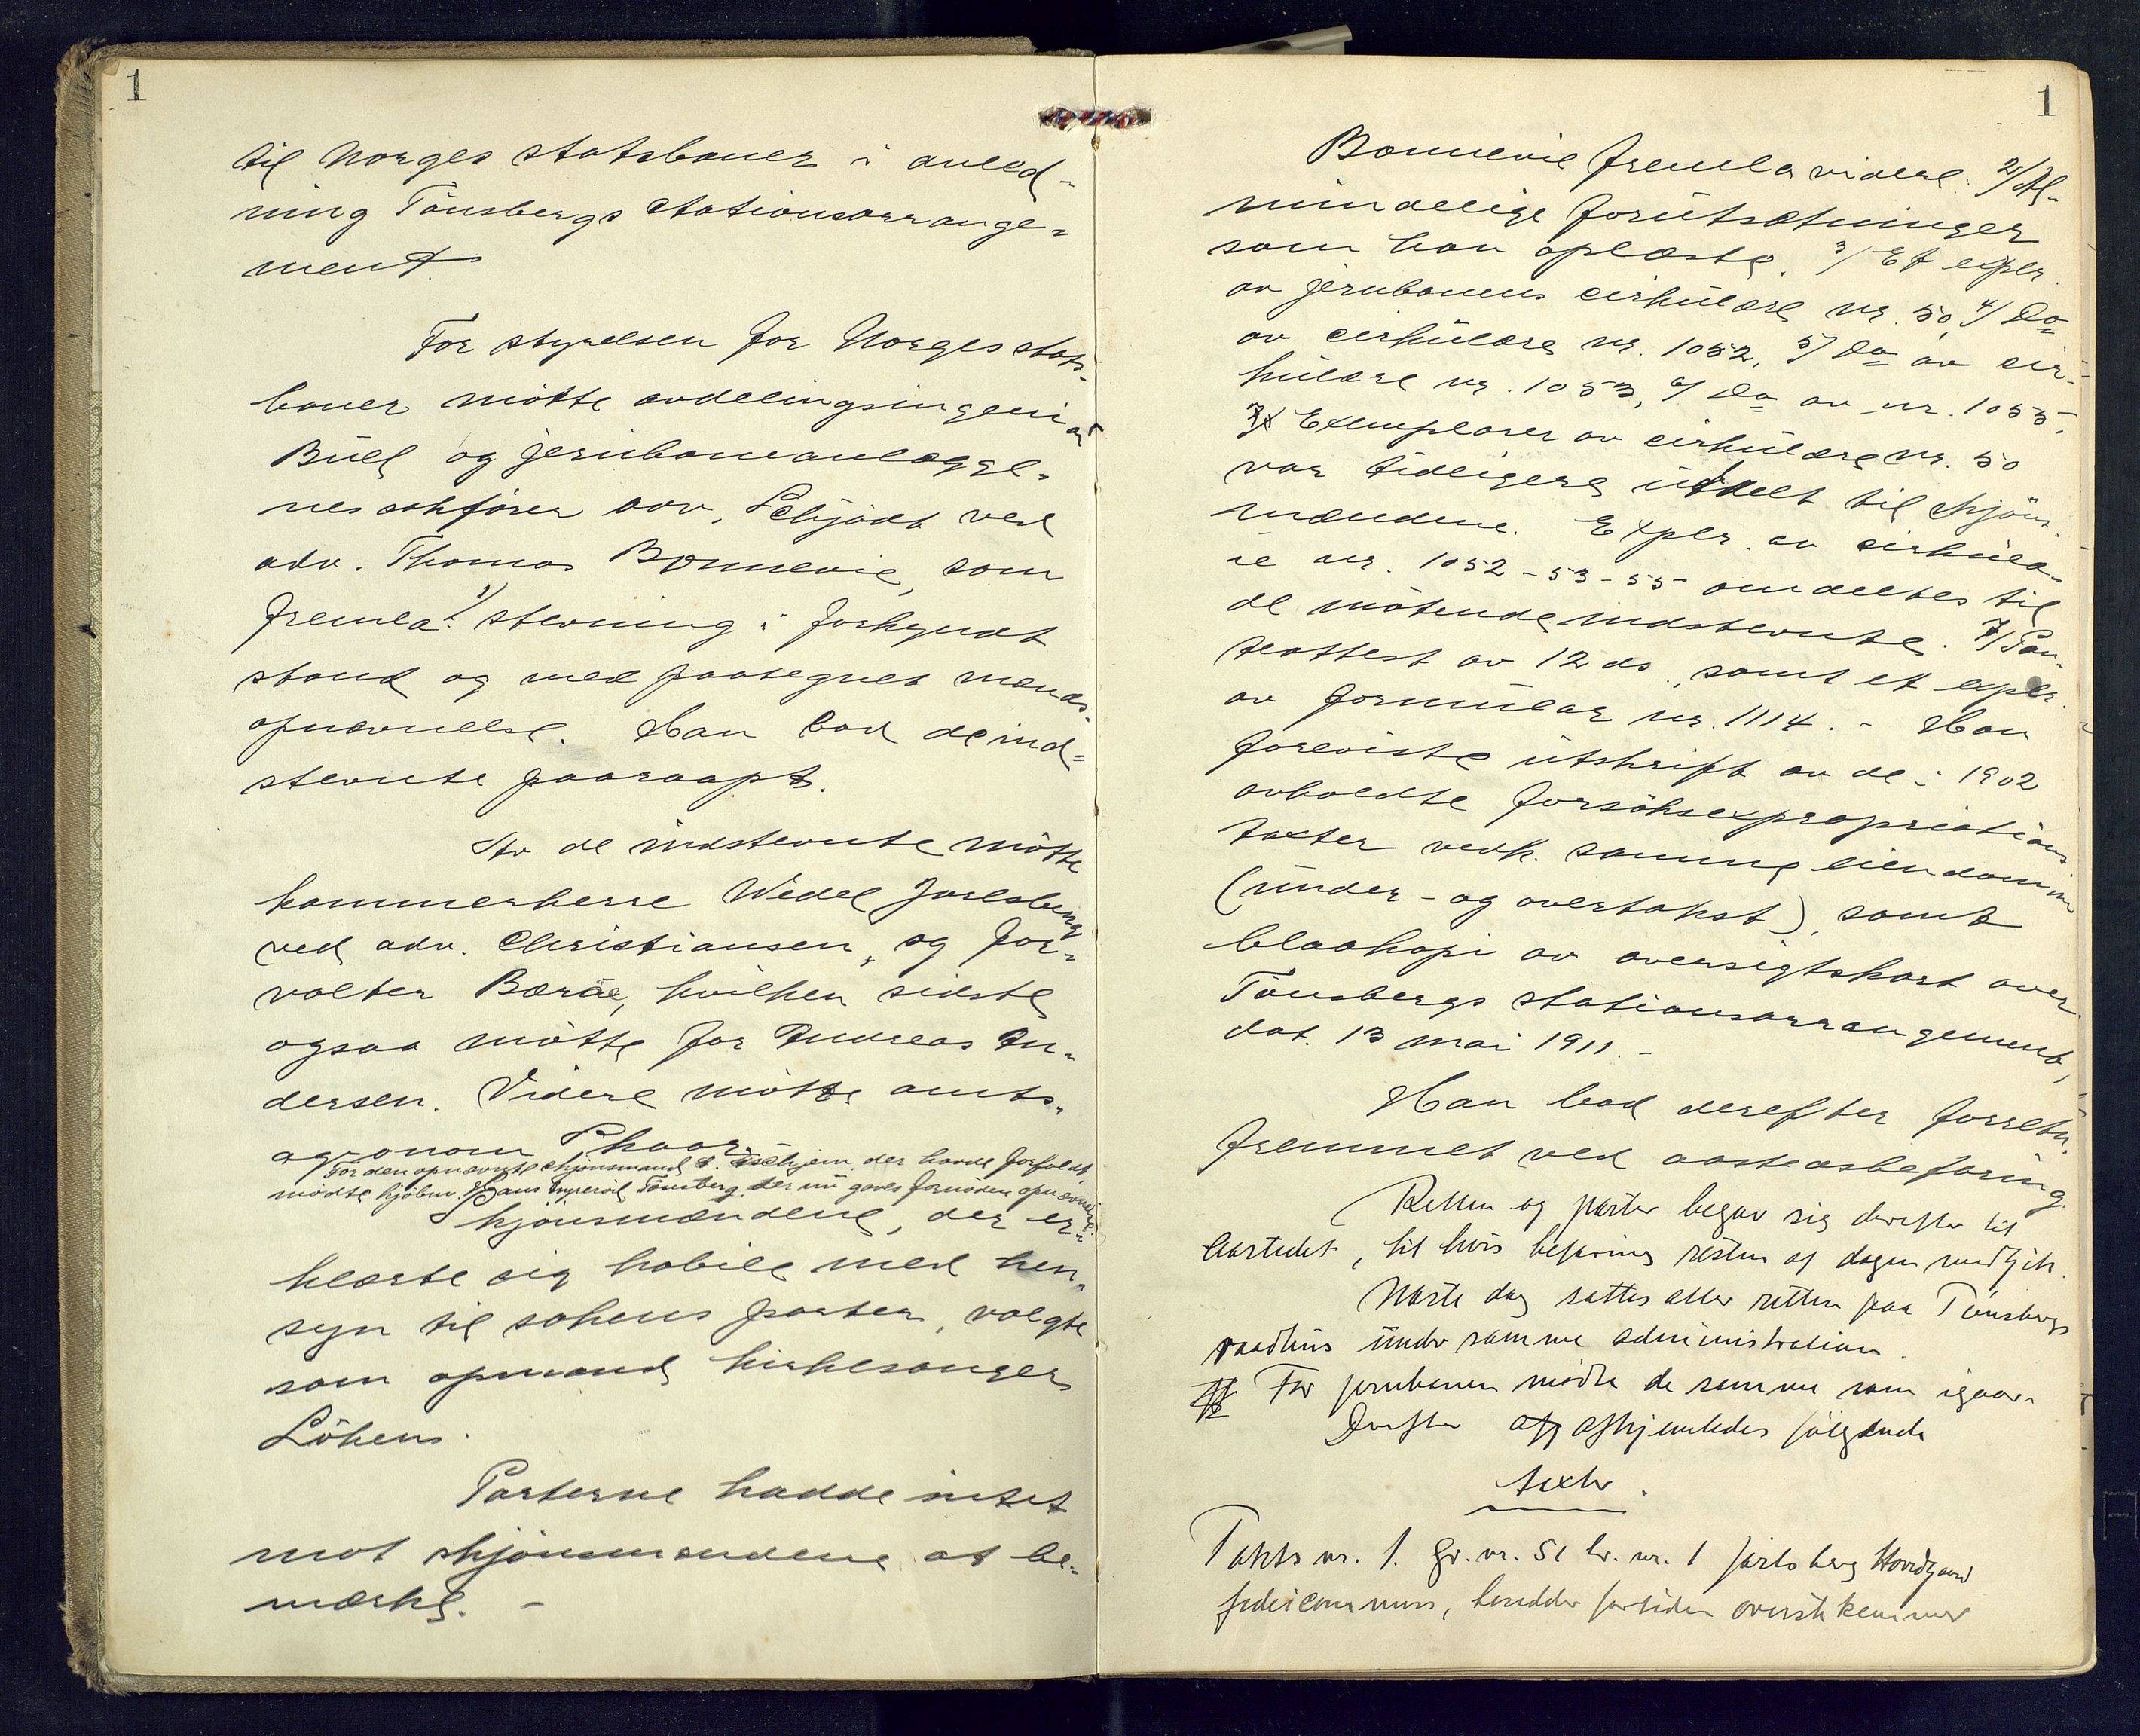 1
til Norges statsbaner i anled-
ning Tönsbergs stationsarrange-
ment.
For styrelsen for Norges stats-
baner mötte avdelingsingeniör
Büll og jernbaneanlægge-
nes sakförer adv. Schjödt ved
adv. Thomas Bonnevie, som
fremla: 1/ stevning i forkyndt
stand og med paategnet mands-
opnævnelse. Han bad de ind-
stevnte paaraapt.
Av de indstevnte mötte
kammerherre Wedel Jarlsberg
ved adv. Christiansen, og for-
valter Børøe, hvilken sidste
ogsaa mötte for Andreas An-
dersen. Videre mötte amts-
agronom
For den opnævnte skjönsmand der havde forfald,
mödte kjöbm. Hans Tönsberg der nu gaves fornöden opnævnelse
Skjönsmændene, der er-
klærte sig habile med hen-
syn til sakens parter, valgte
som opmand kirkesanger
Lökens.
Parterne hadde intet
mot skjönsmændene at be-
mærke. -
1
Bonnevie fremla videre: 2/ Al-
mindelige forutsætninger
som han oplæste. 3/ Et explr.
av jernbanens cirkulære nr. 50, 4/ Do
av cirkulære nr. 1052, 5/ Do av cir-
kulære nr. 1053, 6/ Do av nr. 1055.
Exemplarer av cirkulære nr. 50
var tidligere utdelt til skjöns-
mændene. Explr. av cirkulæ-
re nr. 1052-53-55 omdeltes til
de mötende indstevnte. 7/ Pan-
teattest av 12 ds., samt et explr.
av formular nr. 1114. - Han
foreviste utskrift av de i 1902
avholdte forsöksexpropriations
taxter vedk. samme eiendommer
(under- og overtakst), samt
blaakopi av oversigtskart over
Tönsbergs stationsarrangement,
dat. 13 mai 1911. -
Han bad derefter forretn.
fremmet ved aastedsbefaring.
Retten og parter begav sig derefter til
aastedet, til hvis befaring resten af dagen medgik.
Næste dag sattes atter retten paa Tönsbergs
raadhus under samme administration.
For jernbanen mödte de samme som igaar.
Derefter afhjemledes fölgende
taxter.
Takts nr. 1. Gr. nr. 51 br. nr. 1 Jarlsberg Hovedgaard
fideicommiss, besidder fortiden overstkammer